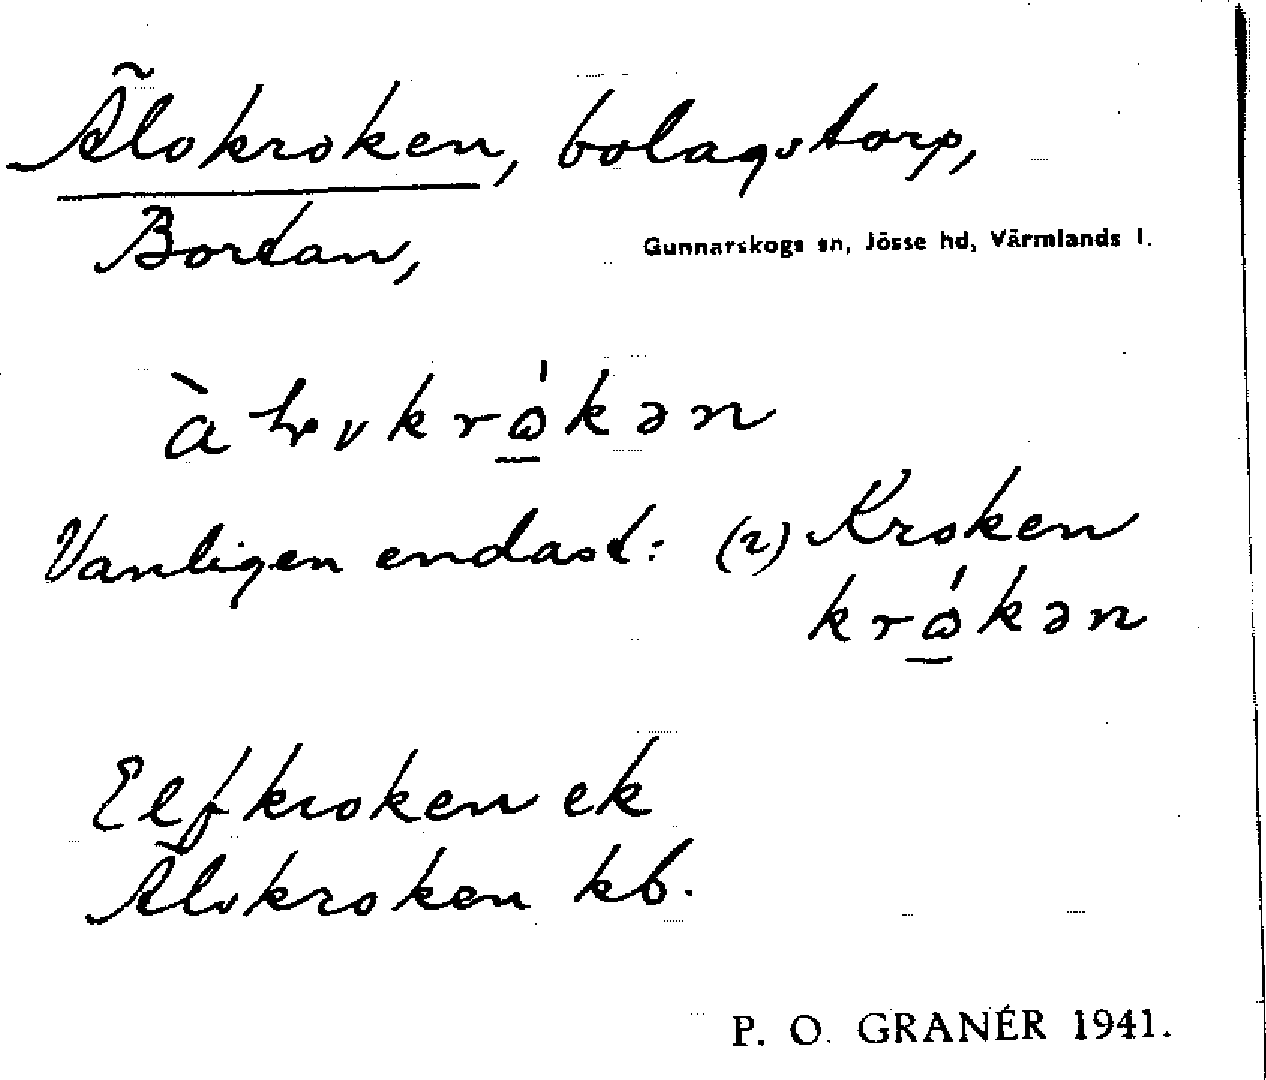 Älvkroken, bolagstorp,
Bortan,
Gunnarskogs sn, Jösse hd, Värmlands l.
Vanligen endast: (2) Kroken
Elfkroken ek
Älvkroken kb.
P. O. GRANÉR 1941.